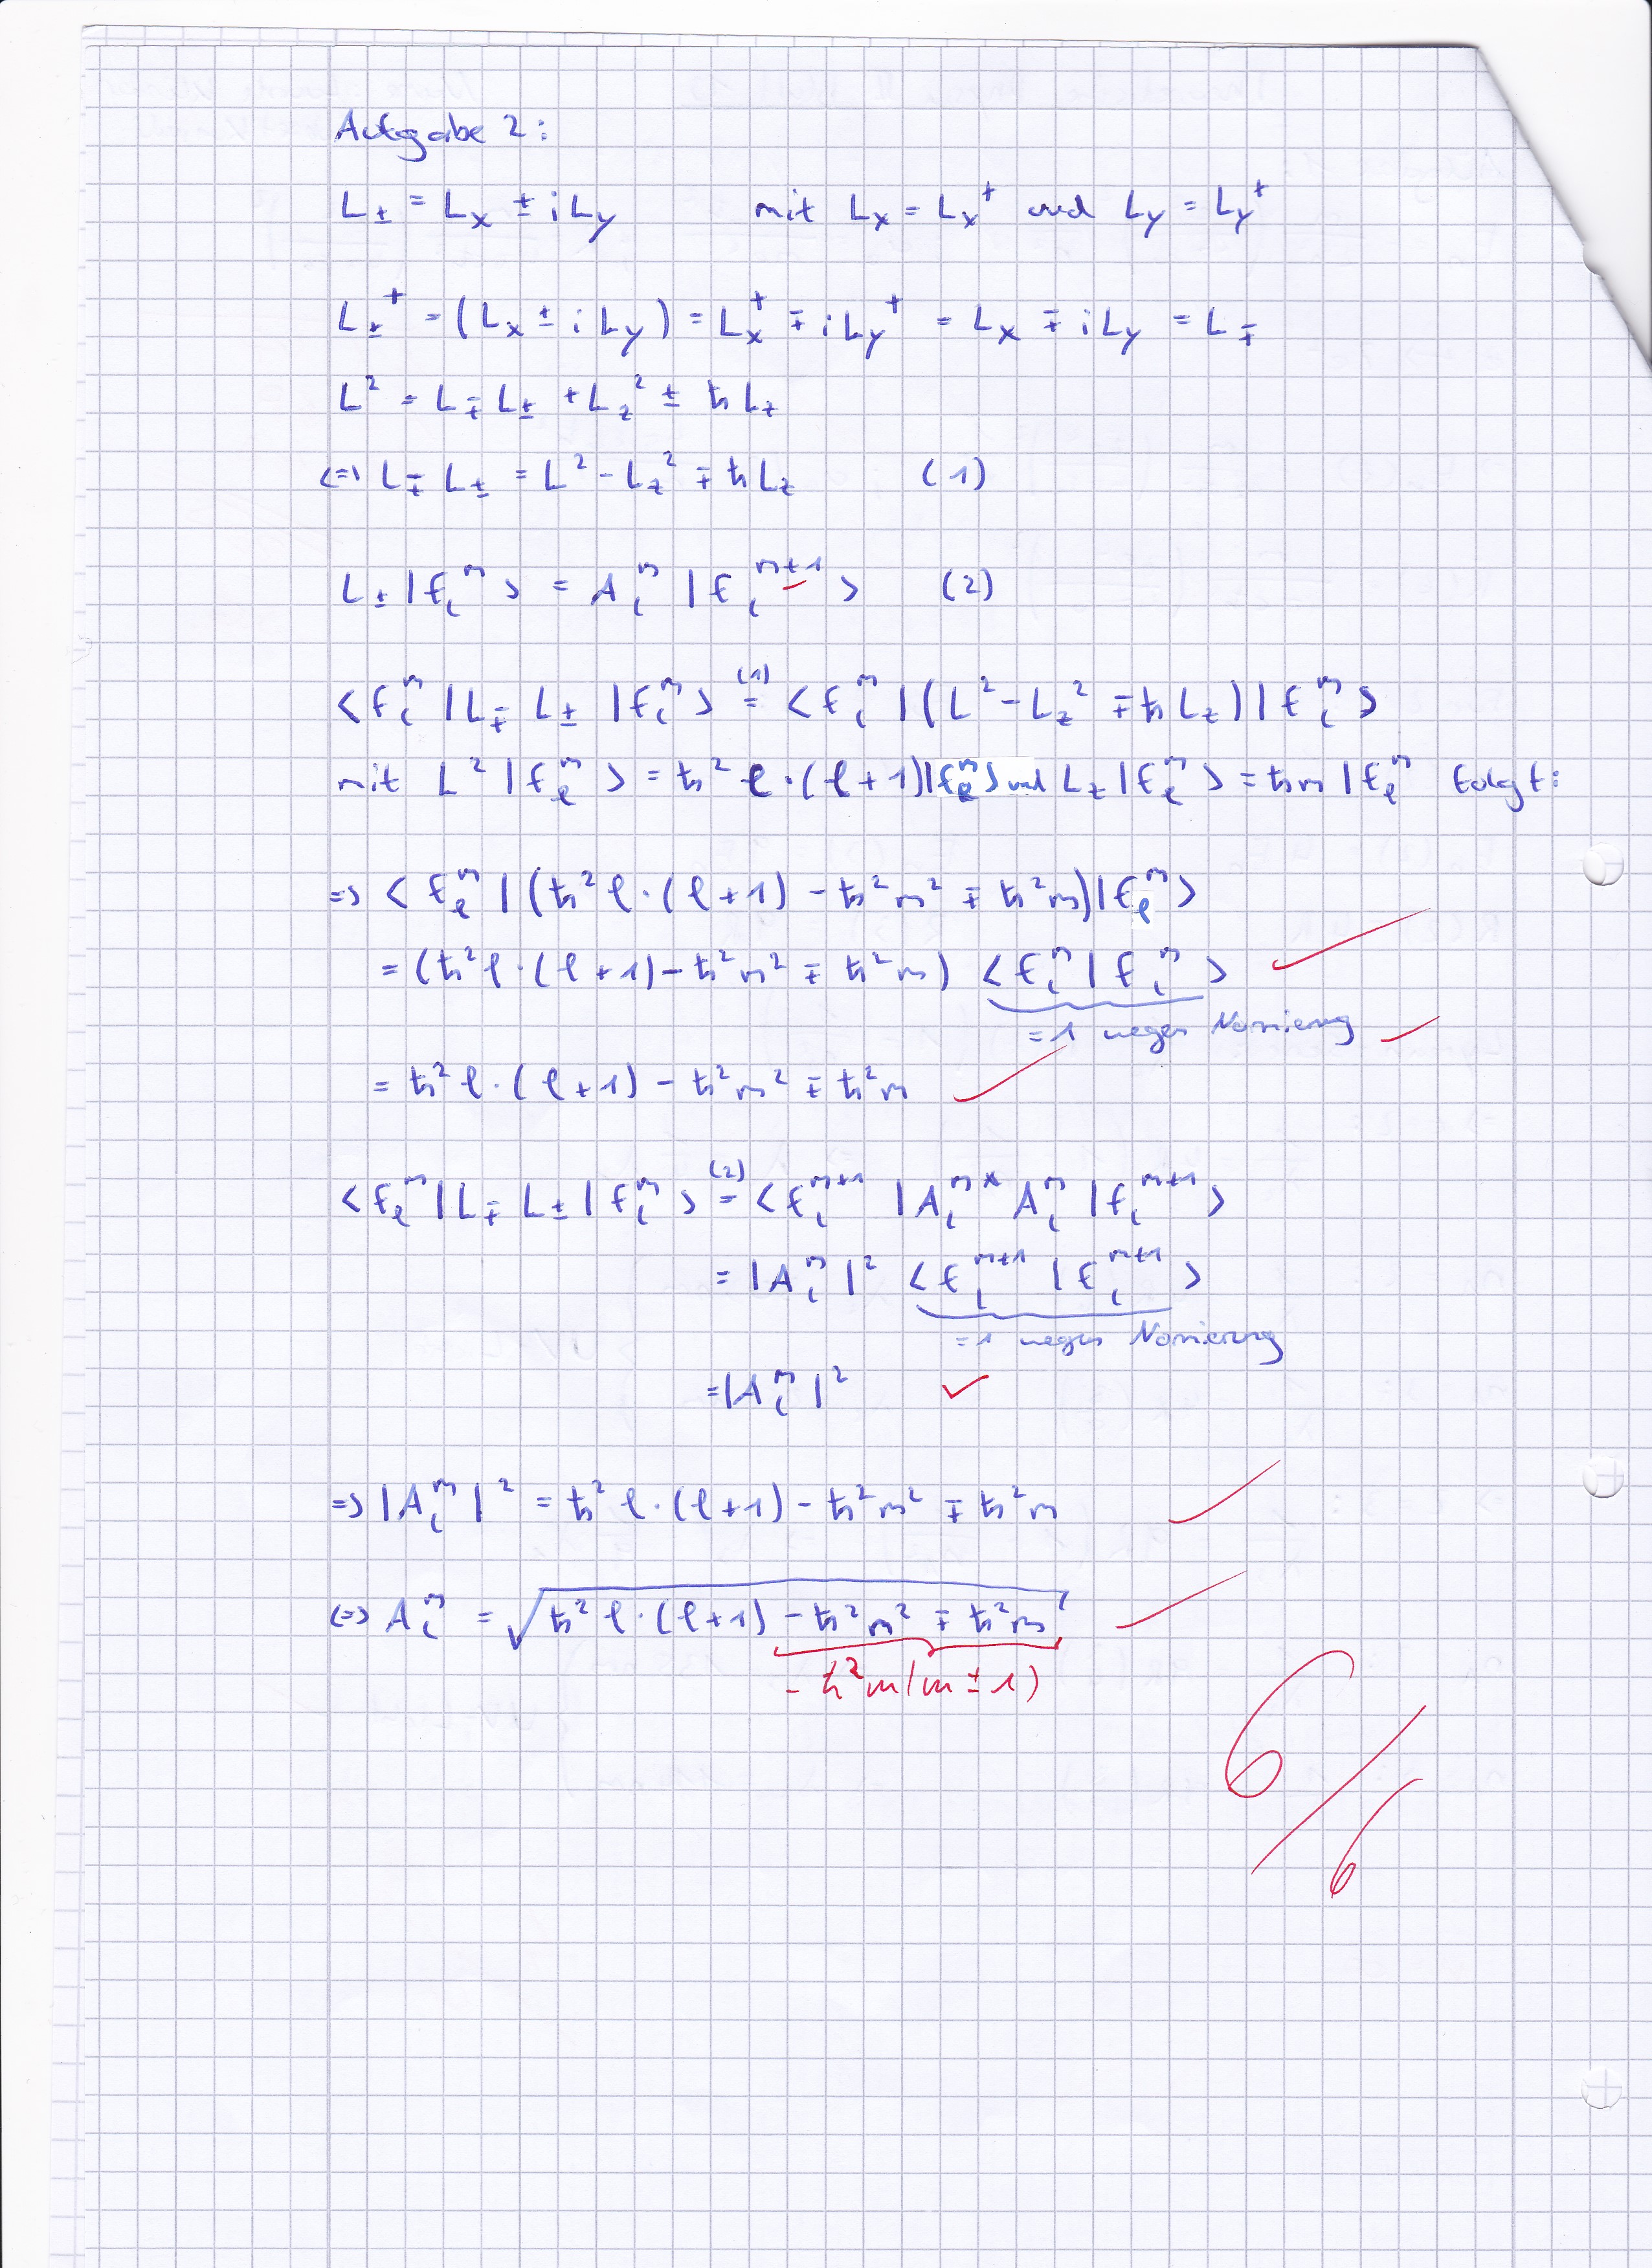 Aufgabe 2:
L± = Lx ± iLy mit Lx = Lx⁺ und Ly = Ly⁺
L±⁺ = (Lx ± iLy) = Lx⁺ ∓ iLy⁺ = Lx ∓ iLy = L∓
L² = L∓ L± + Lz² ± ħLz
<=> L∓ L± = L² - Lz² ∓ ħLz (1)
L± |f_l^m> = A_l^m |f_l^{m±1}> (2)
<f_l^m | L∓ L± | f_l^m> =^(1) <f_l^m | (L² - Lz² ∓ ħLz) | f_l^m>
mit L² |f_l^m> = ħ² l·(l+1)|f_l^m> und Lz |f_l^m> = ħm |f_l^m folgt:
=> <f_l^m | (ħ² l·(l+1) - ħ²m² ∓ ħ²m)|f_l^m>
= (ħ² l·(l+1) - ħ²m² ∓ ħ²m) <f_l^m | f_l^m>
= 1 wegen Normierung
= ħ² l·(l+1) - ħ²m² ∓ ħ²m
<f_l^m | L∓ L± | f_l^m> =^(2) <f_l^{m+1} | A_l^m* A_l^m | f_l^{m+1}>
= |A_l^m|² <f_l^{m+1} | f_l^{m+1}>
= 1 wegen Normierung
= |A_l^m|²
=> |A_l^m|² = ħ² l·(l+1) - ħ²m² ∓ ħ²m
<=> A_l^m = √(ħ² l·(l+1) - ħ²m² ∓ ħ²m)
- ħ²m(m±1)
6/6